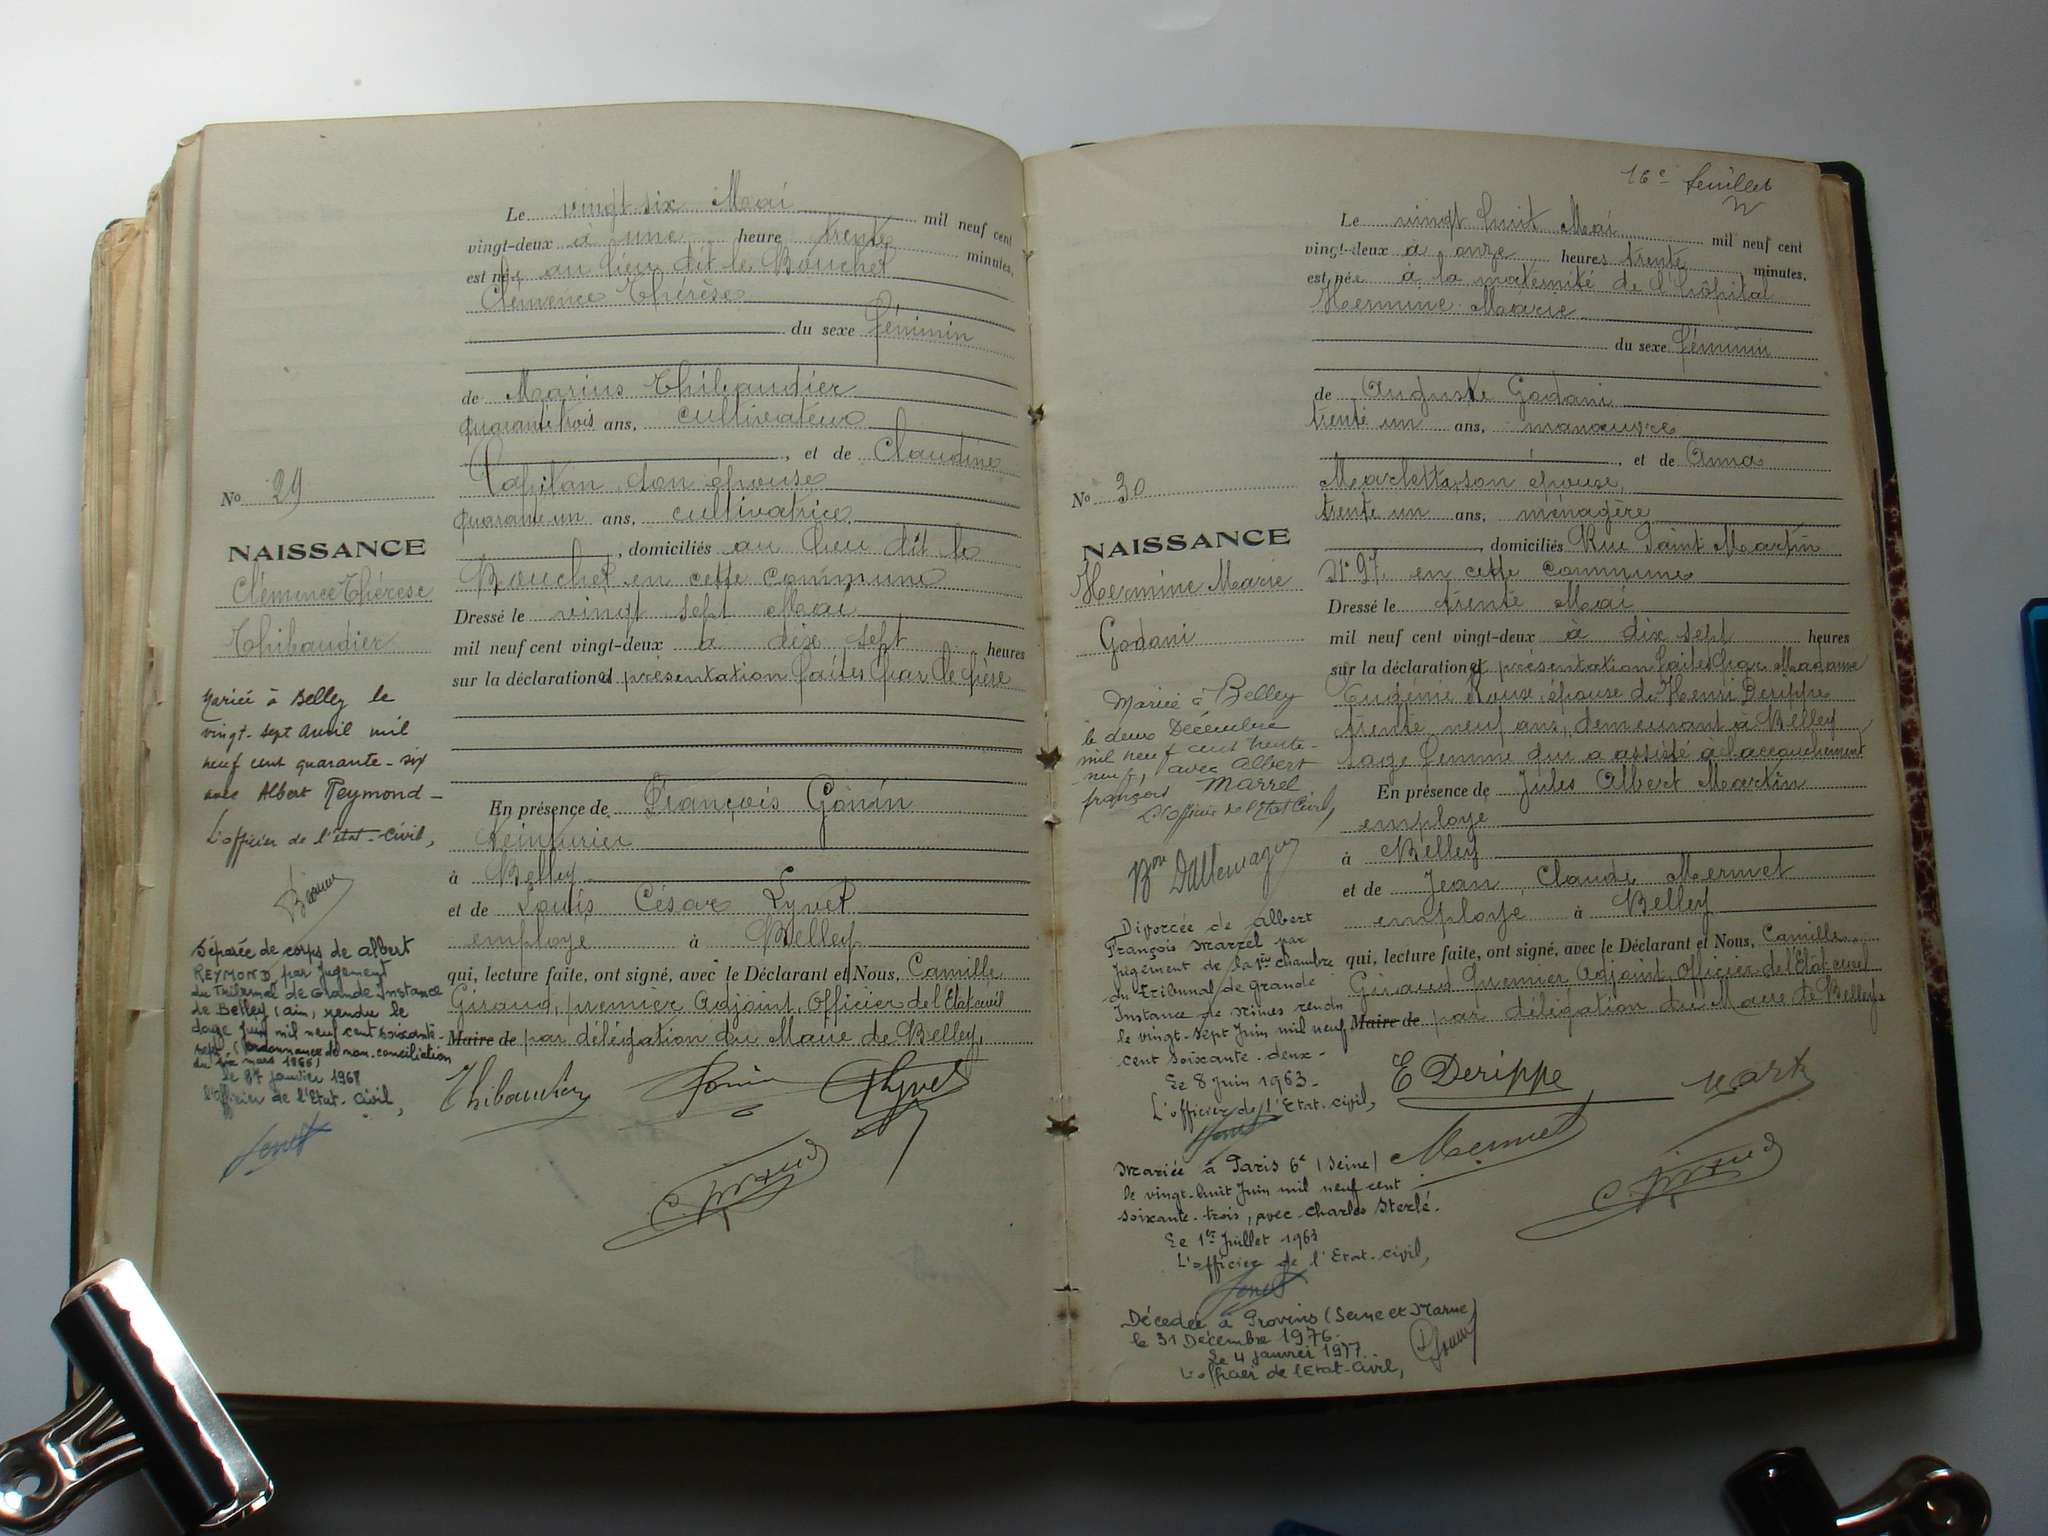 Le vingt six Mai mil neuf cent
vingt-deux à une heure trente minutes,
est née au lieu dit le Bouchet
Clémence Thérèse
du sexe féminin
de Marius Thibaudier
quarante trois ans, cultivateur
, et de Claudine
son épouse
quarante un ans, cultivatrice
, domiciliés au lieu dit le
Bouchet en cette commune
Dressé le vingt sept Mai
mil neuf cent vingt-deux à dix sept heures
sur la déclaration et présentation faites par le père
En présence de François Gonin
Teinturier
à Belley
et de Louis César Lyvet
employé à Belley
qui, lecture faite, ont signé, avec le Déclarant et Nous, Camille
Giraud, premier Adjoint, Officier de l'Etat civil
Maire de par délégation du Maire de Belley.
Thibaudier Gonin Lyvet
C. Giraud
No 29
NAISSANCE
Clémence Thérèse
Thibaudier
Mariée à Belley le
vingt-sept avril mil
neuf cent quarante-six
avec Albert Reymond-
L'officier de l'état-civil,
Séparée de corps de Albert
REYMOND par jugement
du Tribunal de Grande Instance
de Belley (ain) rendu le
douze juin mil neuf cent soixante-
sept (ordonnance de non-conciliation
du six mars 1966)
Le janvier 1968
L'officier de l'Etat-civil,
16e feuillet
Le vingt huit Mai mil neuf cent
vingt-deux à onze heures trente minutes,
est née à la maternité de l'hôpital
Hermine Marie
du sexe féminin
de Auguste Godani
trente un ans, manœuvre
, et de Anna
son épouse,
trente un ans, ménagère
, domiciliés Rue Saint Martin
N° 97, en cette commune
Dressé le trente Mai
mil neuf cent vingt-deux à dix sept heures
sur la déclaration et présentation faites par Madame
Eugénie Roux épouse de Henri Derippe
trente neuf ans, demeurant à Belley
sage femme qui a assisté à l'accouchement
En présence de Jules Albert Martin
employé
à Belley
et de Jean Claude Mermet
employé à Belley
qui, lecture faite, ont signé, avec le Déclarant et Nous, Camille
Giraud Premier Adjoint, Officier de l'Etat civil
Maire de par délégation du Maire de Belley.
E Derippe Martin
Mermet
C. Giraud
No 30
NAISSANCE
Hermine Marie
Godani
Mariée à Belley
le deux Décembre
mil neuf cent trente-
neuf, avec Albert
françois Marrel
L'officier de l'Etat Civil,
Bon Dallemagne
Divorcée de Albert
François Marrel par
jugement de la 1ère chambre
du Tribunal de Grande
Instance de Nîmes rendu
le vingt-sept Juin mil neuf
cent soixante-deux-
Le 8 Juin 1963-
L'officier de l'Etat-civil,
Mariée à Paris 6e (Seine)
le vingt-huit Juin mil neuf cent
soixante-trois, avec Charles Sterlé.
Le 1er Juillet 1963
L'officier de l'Etat-civil,
Décédée à Provins (Seine et Marne)
le 31 Décembre 1976.
Le 4 janvier 1977.
L'officier de l'Etat-Civil,